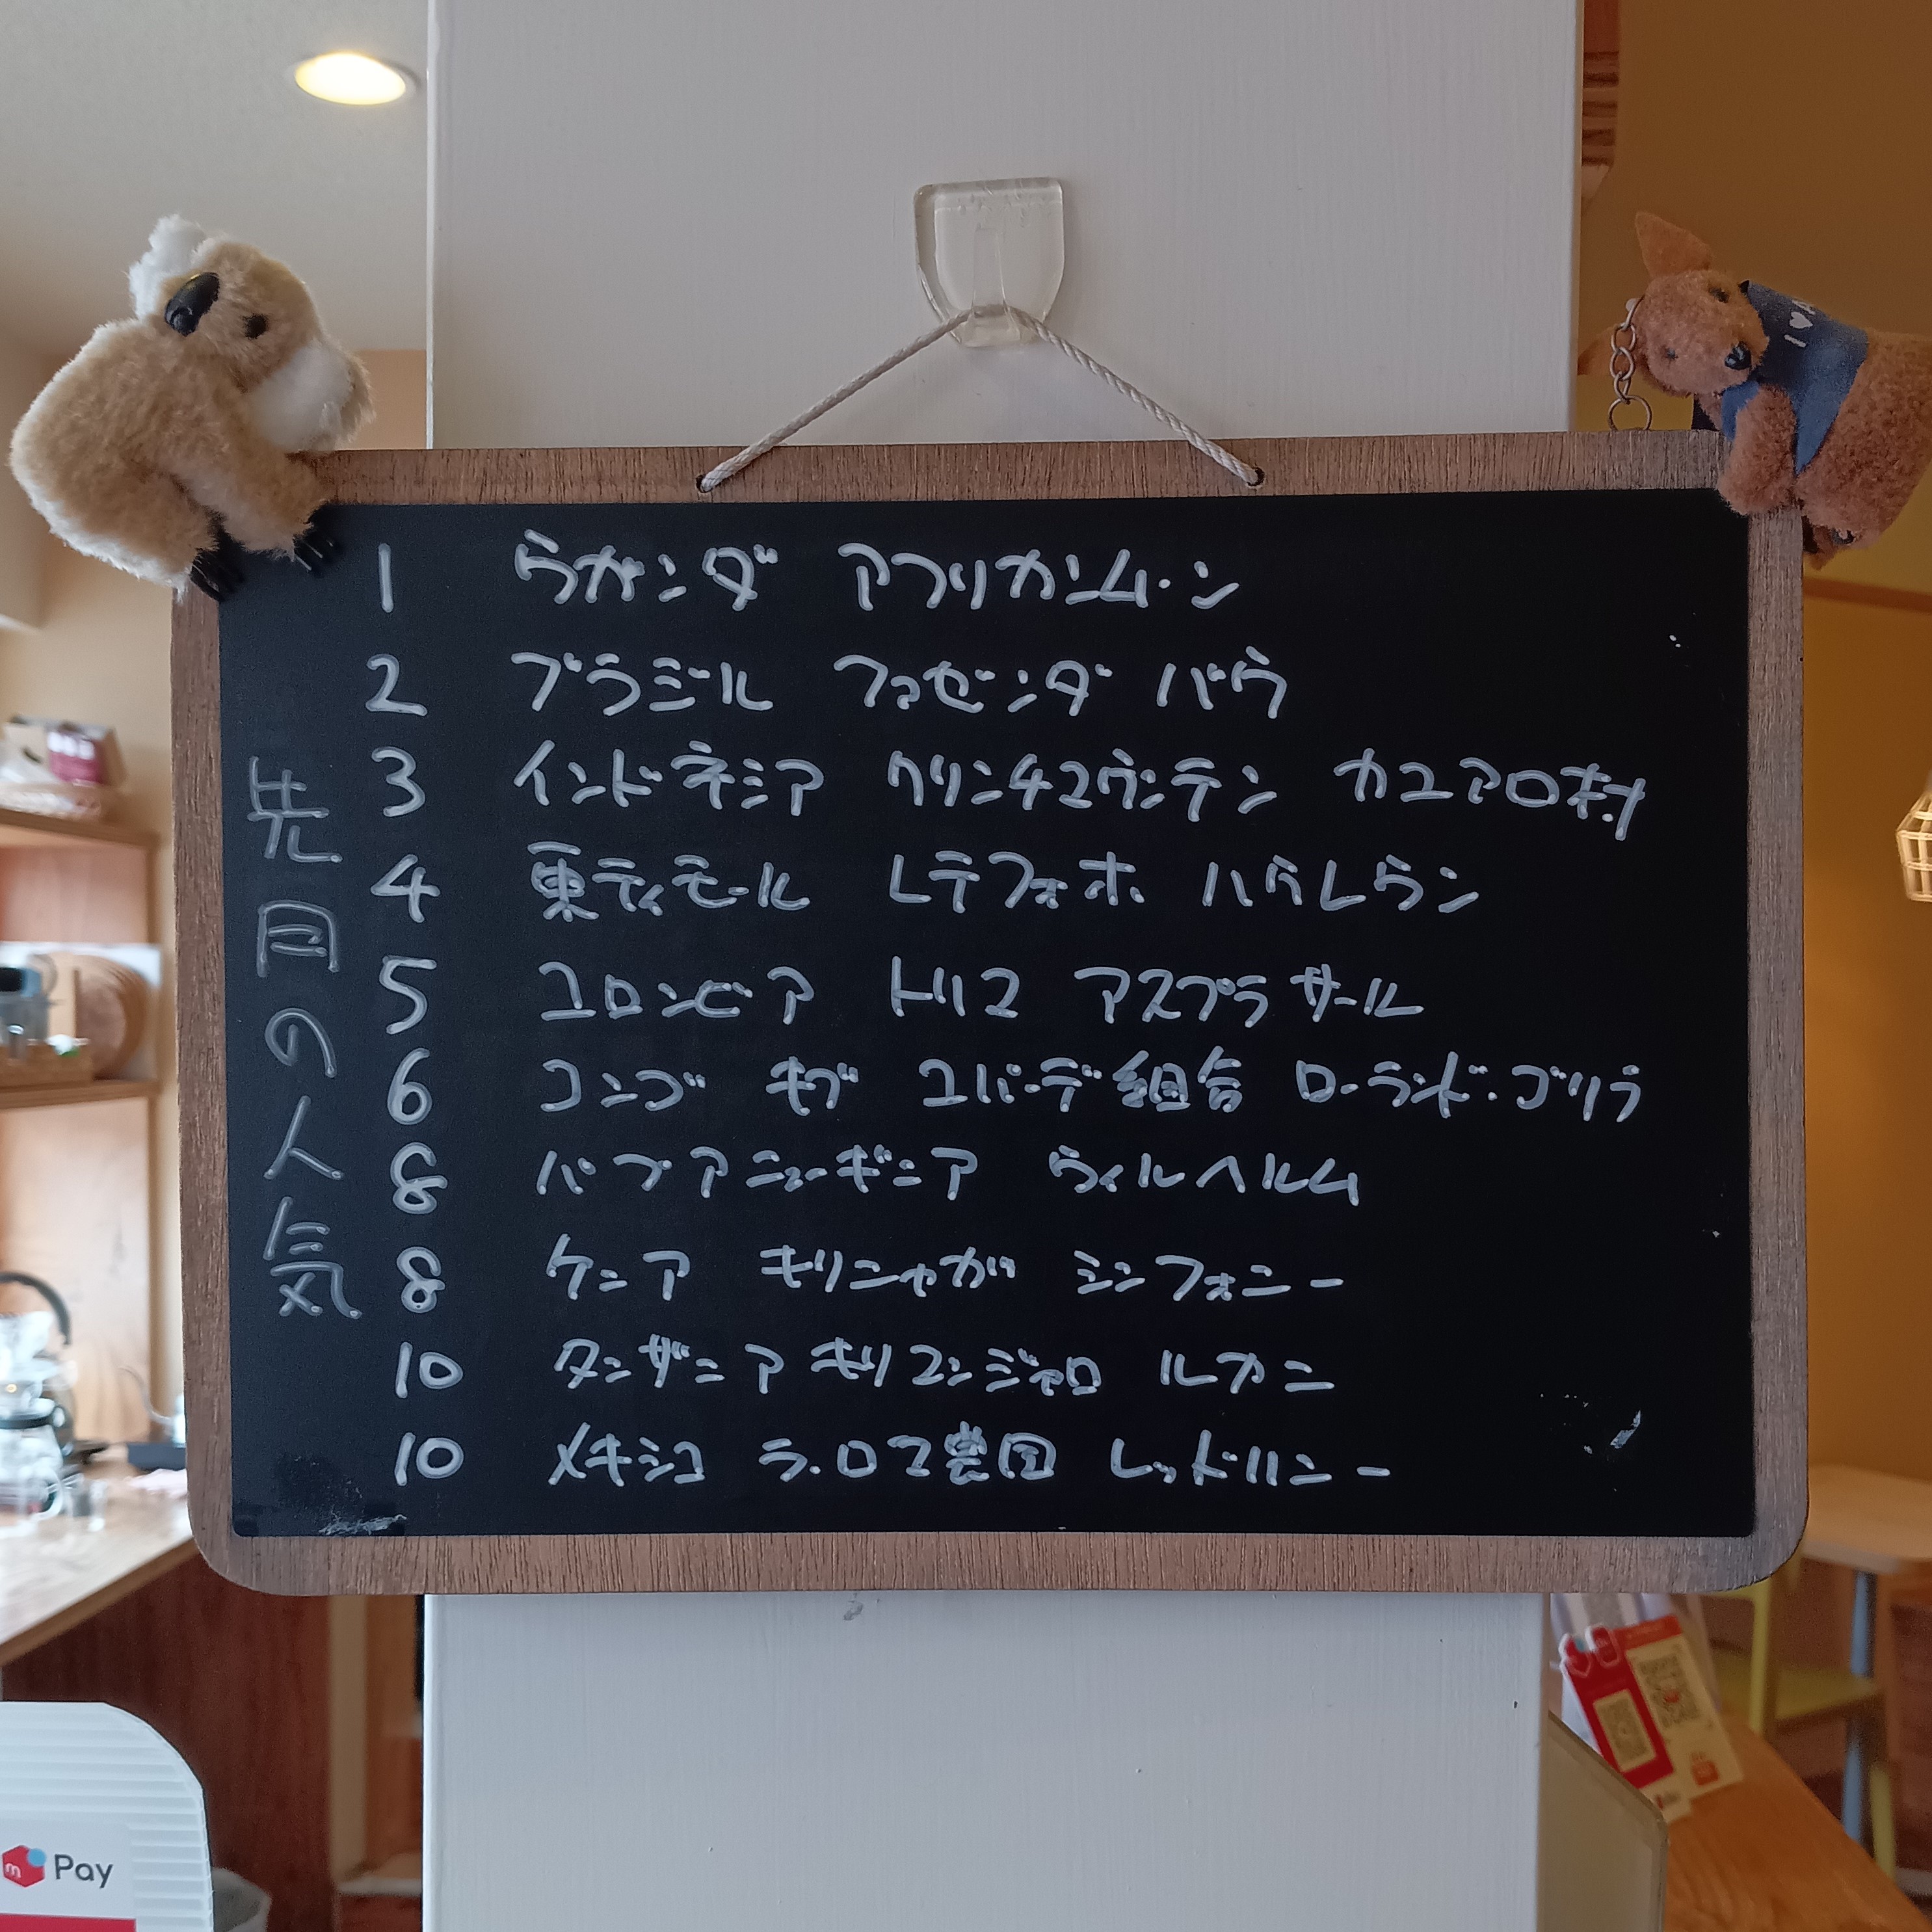 先月の人気
1 ウガンダ アフリカンムーン
2 ブラジル ファゼンダ バウ
3 インドネシア クリンチマウンテン カユアロ村
4 東ティモール レテフォホ ハウレウン
5 コロンビア トリマ アスプラサール
6 コンゴ キブ コパーデ組合 ローランド・ゴリラ
8 パプアニューギニア ウィルヘルム
8 ケニア キリニャガ シンフォニー
10 タンザニア キリマンジャロ ルカニ
10 メキシコ ラ・ロマ農園 レッドハニー
I ♥ A
m Pay